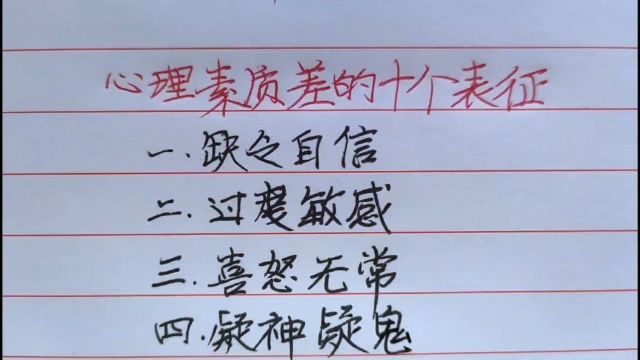 心理素质差的十个表征
一.缺乏自信
二.过度敏感
三.喜怒无常
四.疑神疑鬼